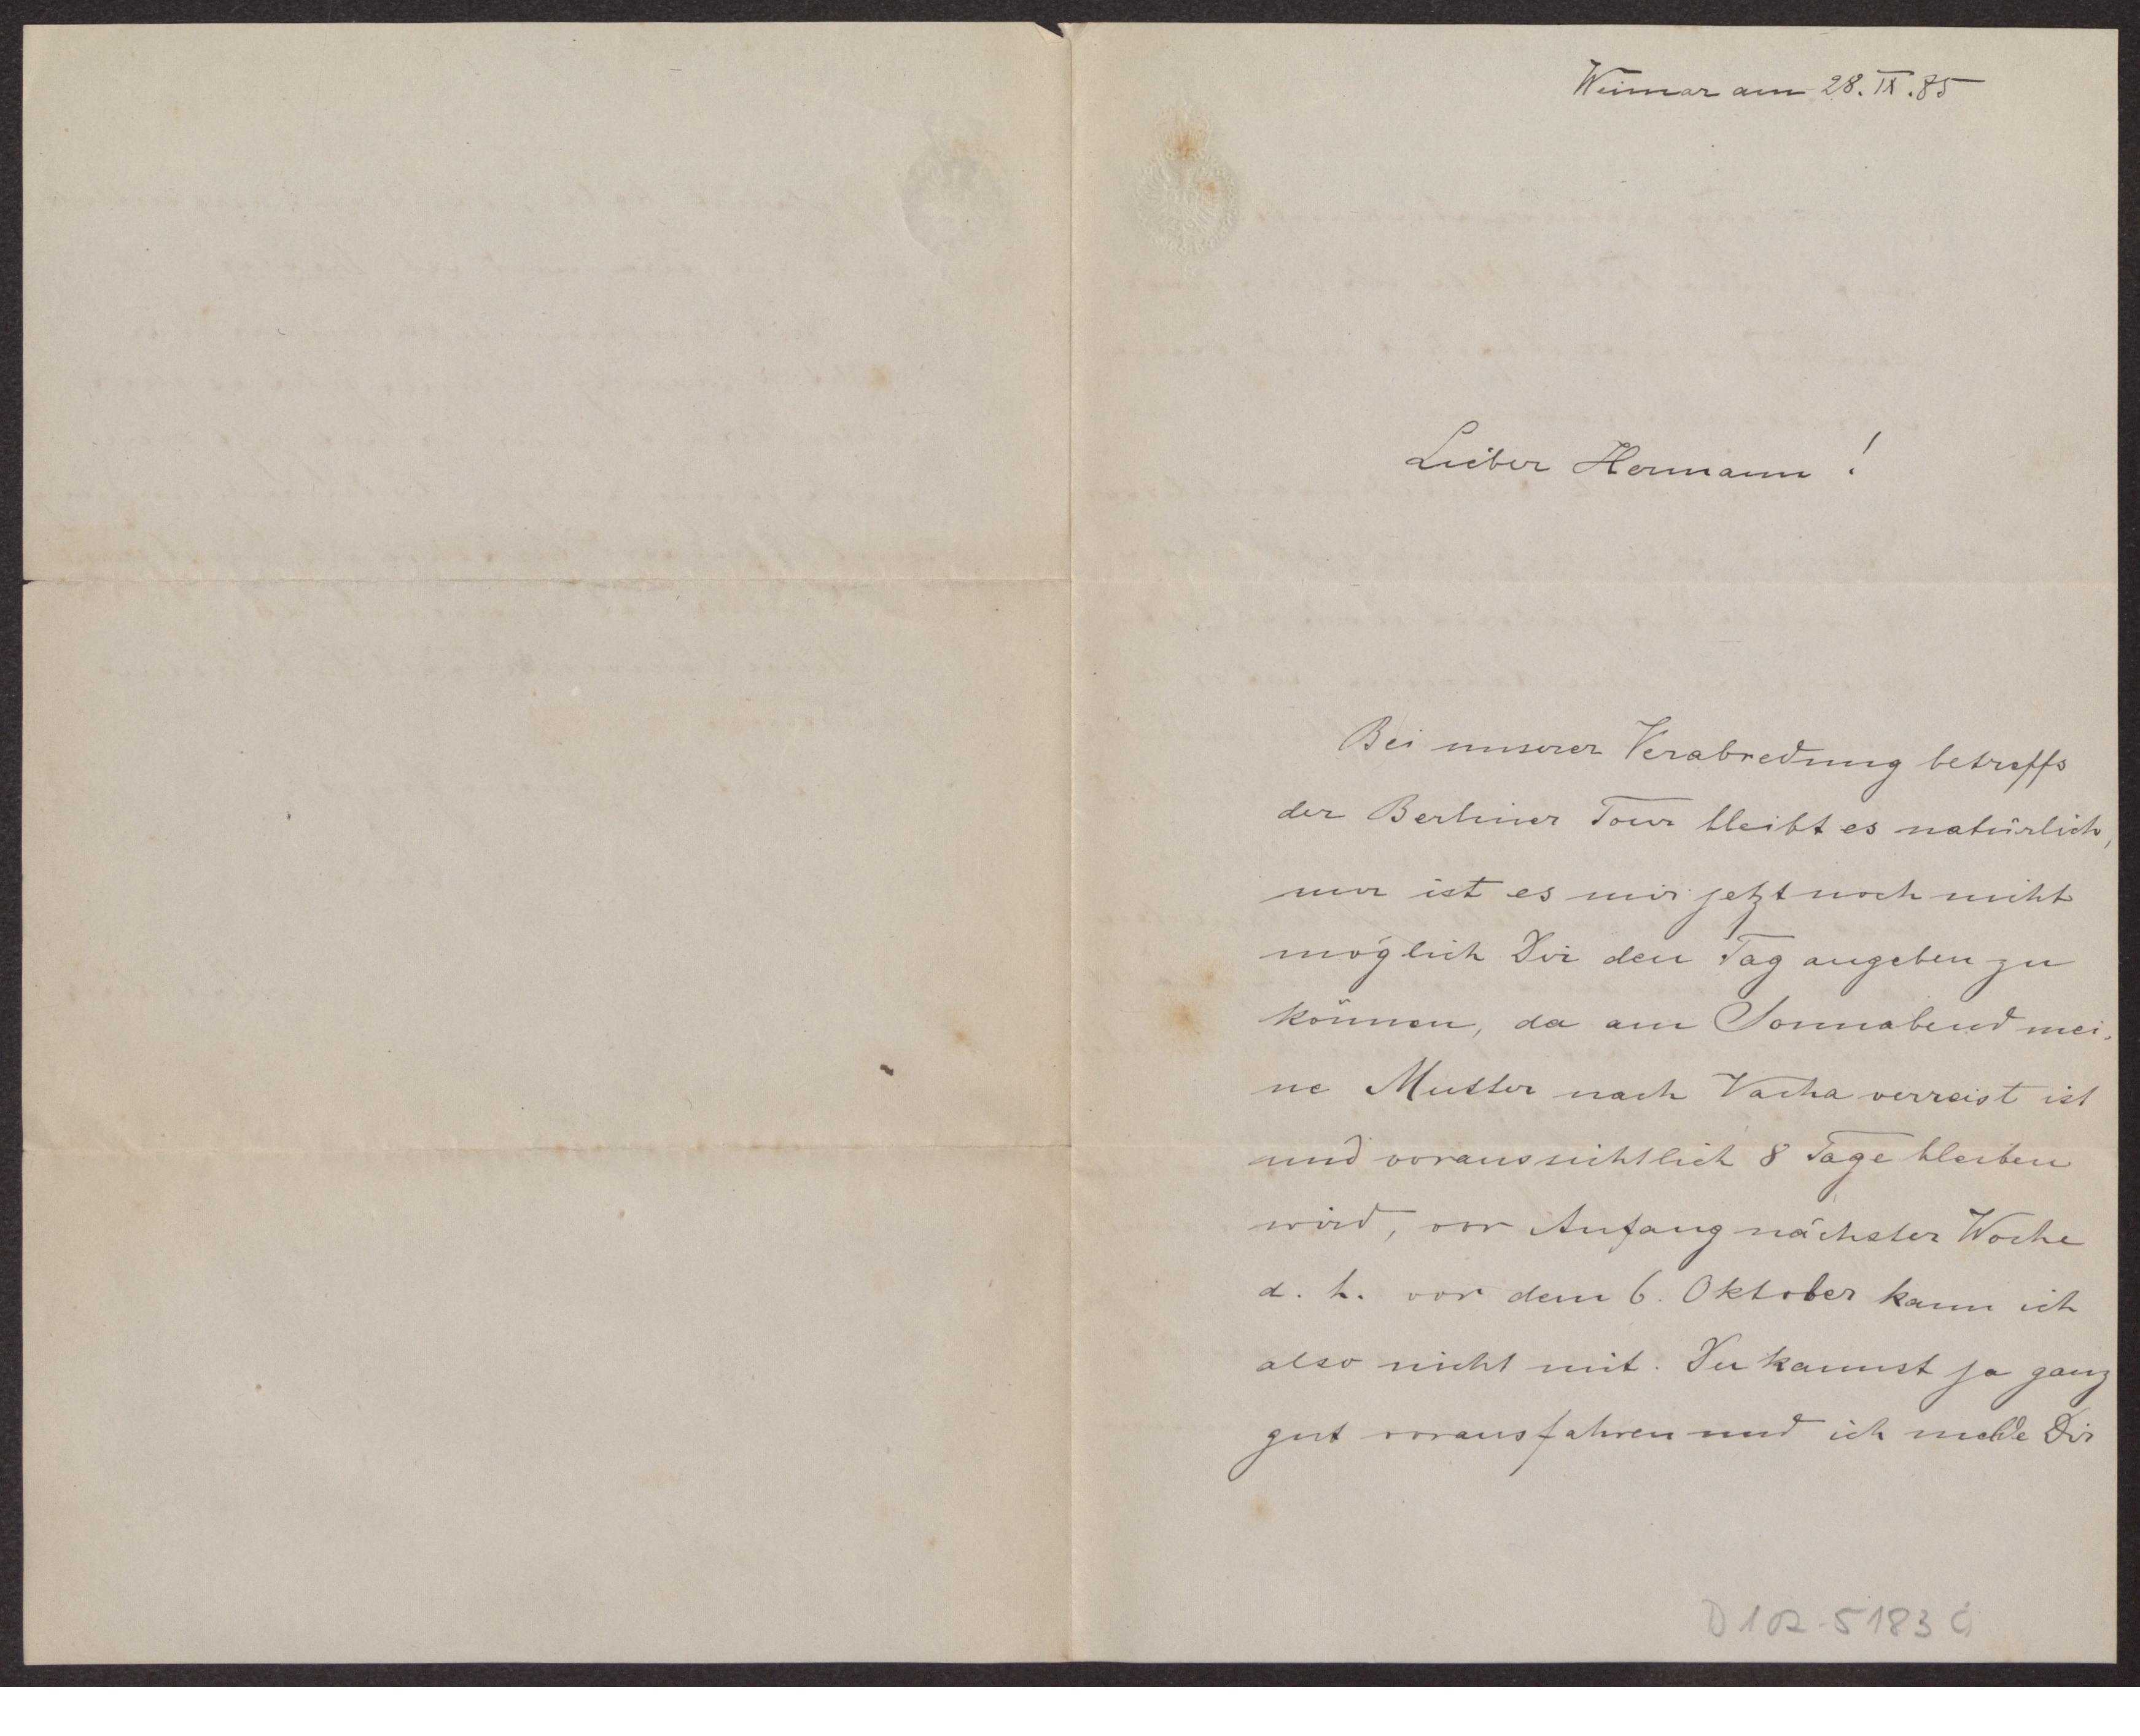 Weimar am 28. IX. 85
Lieber Hermann!
Bei unserer Verabredung betreffs
der Berliner Tour bleibt es natürlich,
nur ist es mir jetzt noch nicht
möglich Dir den Tag angeben zu
können, da am Sonnabend mei-
ne Mutter nach Vacha verreist ist
und voraussichtlich 8 Tage bleiben
wird, vor Anfang nächster Woche
d. h. vor dem 6. Oktober kann ich
also nicht mit. Du kannst ja ganz
gut vorausfahren und ich melde Dir